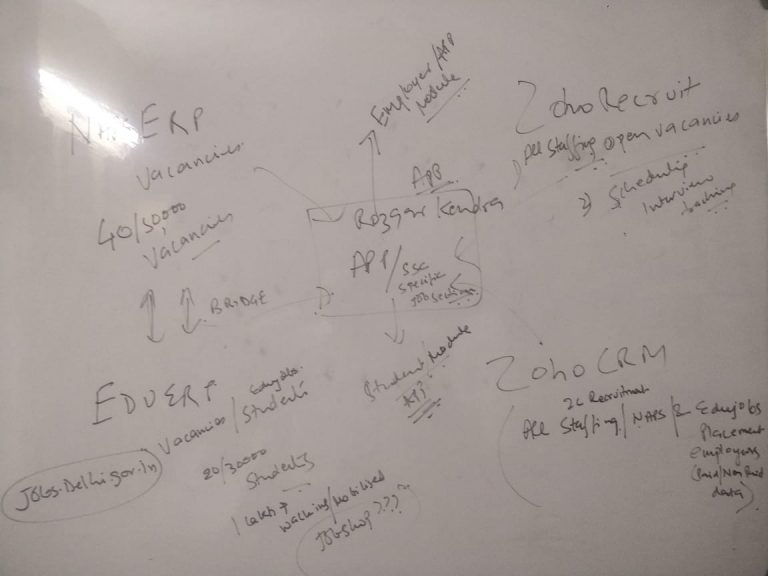 ERP
Vacancies
40/30000
Vacancies
BRIDGE
Employer/APP
Module
Zoho Recruit
All Staffing open vacancies
2) Scheduling
Interview
App
Rozgar Kendra
APP/
SSC
Specific
Job Sections
Student Module
API
EDUERP
Vacancies/Students
Edujobs
20/30000
Students
1 Lakh+
walking/Mobilized
Jobshop ????
Jobs.Delhi.gov.in
Zoho CRM
Recruitment
All Staffing/NAPS/
Edujobs
Placement
employers
(Paid/Non Paid
data)